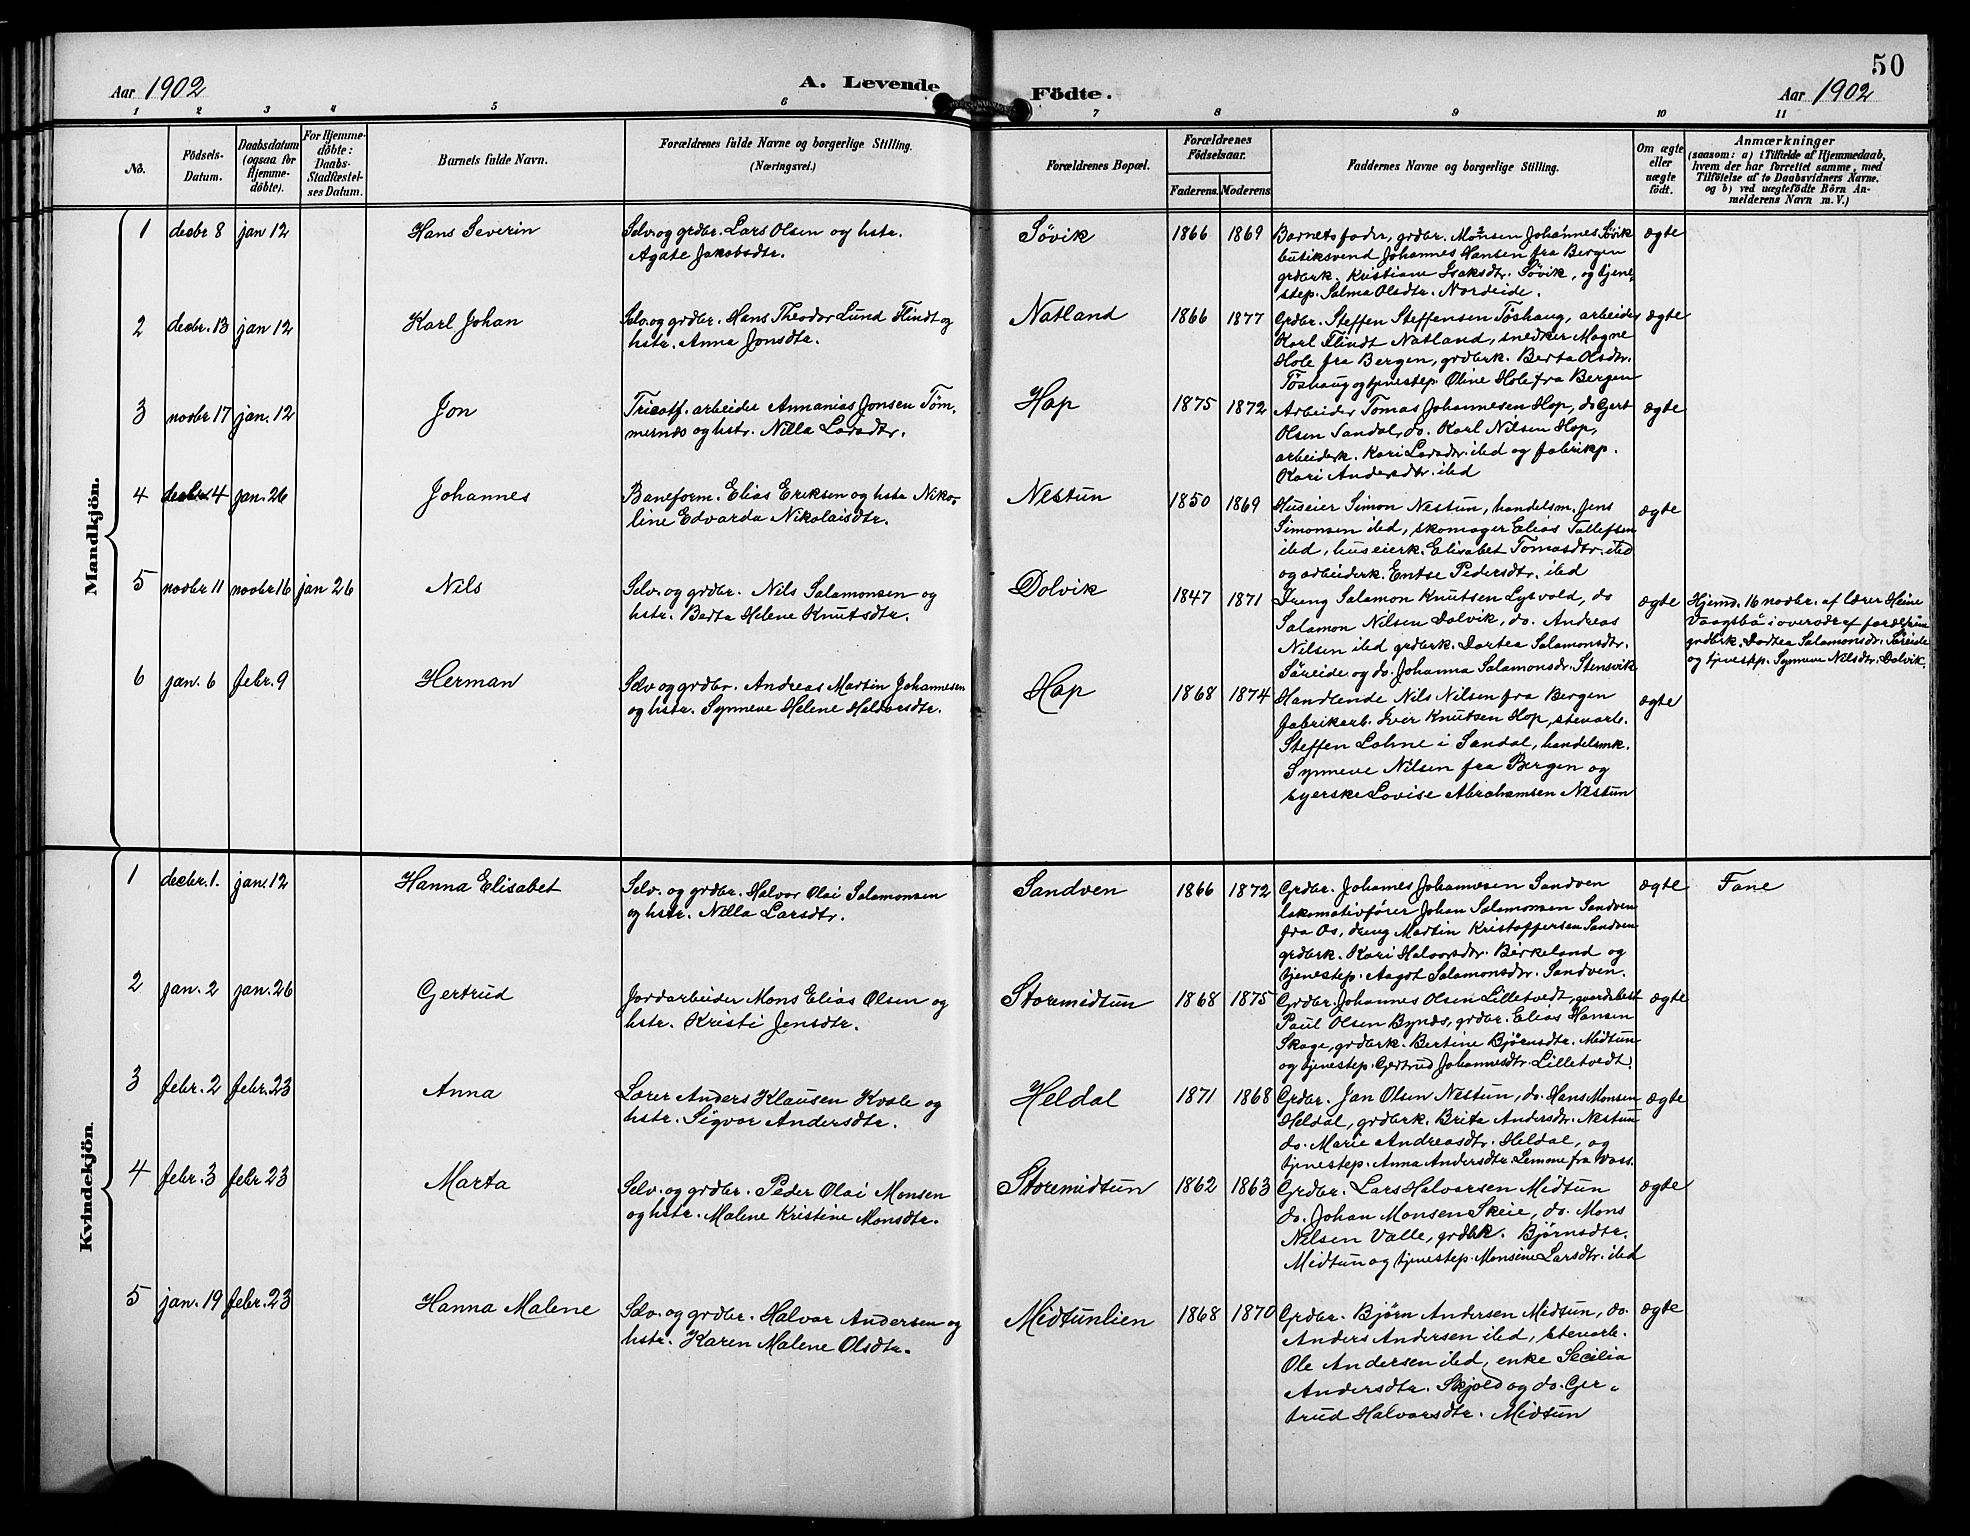 50
Aar 1902 A. Levende Födte. Aar 1902
1 2 3 4 5 6 7 8 9 10 11
No.
Födsels-
Datum.
Daabsdatum
(ogsaa for
Hjemme-
döbte).
For Hjemme-
döbte:
Daabs-
Stadfæstel-
ses Datum.
Barnets fulde Navn.
Forældrenes fulde Navne og borgerlige Stilling.
(Næringsvei.)
Forældrenes Bopæl.
Forældrenes
Födselsaar.
Faderens. Moderens
Faddernes Navne og borgerlige Stilling.
Om ægte
eller
uægte
födt.
Anmærkninger
(saasom: a) i Tilfælde af Hjemmedaab,
hvem der har forrettet samme, med
Tilföielse af to Daabsvidners Navne.
og b) ved uægtefödte Börn An-
melderens Navn m. V.)
Mandkjön.
1 decbr 8 jan 12 Hans Severin
Selv. og grdbr. Lars Olsen og hstr.
Agate Jakobsdtr.
Søvik 1866 1869
Barnets fader, grdbr. Monsen Johannes Søvik
butiksvend Johannes Hansen fra Bergen
grdbrk. Kristiane Isaksdtr. Søvik, og tjene-
step. Salma Olsdtr. Nordeide.
ægte
2 decbr. 13 jan 12 Karl Johan
Selv. og grdbr. Hans Theodor Lund Flindt og
hstr. Anna Jonsdtr.
Natland 1866 1877
Grdbr. Steffen Steffensen Tøshaug, arbeider
Karl Flindt Natland, snedker Magne
Hole fra Bergen, grdbrk. Berta Olsdtr.
Tøshaug og tjenestep. Oline Hole fra Bergen
ægte
3 novbr 17 jan. 12 Jon
Tricotf. arbeider Annanias Jonsen Töm-
mernes og hstr. Nilla Larsdtr.
Hop 1875 1872
Arbeider Tomas Johannesen Hop, do Gert
Olsen Sandal, do. Karl Nilsen Hop,
arbeiderk. Kari Larsdtr. ibd og fabrikp.
Kari Andersdtr. ibd
ægte
4 decbr 4 jan. 26 Johannes
Baneform. Elias Eriksen og hstr Niko-
line Edvarda Nikolaisdtr.
Nestun 1850 1869
Huseier Simon Nestun, handelsm. Jens
Simonsen ibd, skomager Elias Tollefsen
ibd, huseierk. Elisabet Tomasdtr. ibd
og arbeiderk. Entse Pedersdtr. ibd
ægte
5 novbr 11 novbr 16 jan 26 Nils
Selv. og grdbr. Nils Salamonsen og
hstr. Berta Helene Knutsdtr.
Dolvik 1847 1871
Dreng Salamon Knutsen Lysvold, do
Salamon Nilsen Dolvik, do. Andreas
Nilsen ibd grdbrk. Dortea Salamonsdtr.
Søreide og do. Johanna Salamonsdr. Stensvik
ægte
Hjemd. 16 novbr. af lærer Heine
Vaagsbø i overvær af forældrene
grdbrk. Dortea Salamonsdr. Søreide
og tjenestep. Synneve Nilsdtr. Dolvik.
6 jan. 6 febr. 9 Herman
Selv og grdbr. Andreas Martin Johannesen
og hstr. Synneve Helene Haldorsdtr.
Hop 1868 1874
Handlende Nils Nilsen fra Bergen
fabrikarb. Iver Knutsen Hop, stenarb.
Steffen Lohne i Sandal, handelsmk.
Synneve Nilsen fra Bergen og
syerske Lovise Abrahamsen Nestun
ægte
Kvindekjön.
1 decbr. 1. jan. 12 Hanna Elisabet
Selv. og grdbr. Halvor Olai Salamonsen
og hstr. Nilla Larsdtr.
Sandven 1866 1872
Grdbr. Johannes Johannesen Sandven
lokomativförer Johan Salamonsen Sandven
fra Os, dreng Martin Kristoffersen Sandven
grdbrk. Kari Halvorsdtr. Birkeland og
tjenestep. Aagot Salamonsdtr. Sandven.
ægte Fane
2 jan. 2 jan. 26 Gertrud
Jordarbeider Mons Elias Olsen og
hstr. Kristi Jensdtr.
Storemidtun 1868 1875
Grdbr. Johannes Olsen Lilletvedt, gaardsbest
Paul Olsen Bynes, grdbr. Elias Hansen
Skage, grdbrk. Bertine Bjørnsdtr. Midtun
og tjenestep. Gertrud Johannesdtr. Lilletvedt.
ægte
3 febr. 2 febr. 23 Anna
Lærer Anders Klausen Kvale og
hstr. Sigvor Andersdtr.
Heldal 1871 1868
Grdbr. Jan Olsen Nestun, do. Hans Monsen
Heldal, grdbrk. Brita Andersdtr. Nestun
do. Marie Andreasdtr. Heldal, og
tjenestep. Anna Andersdtr. Lemme fra Voss.
ægte
4 febr. 3 febr. 23 Marta
Selv. og grdbr. Peder Olai Monsen
og hstr. Malene Kristine Monsdtr.
Storemidtun 1862 1863
Grdbr. Lars Halvorsen Midtun
do. Johan Monsen Skeie, do. Mons
Nilsen Valle, grdbrk. Bjørnsdtr.
Midtun og tjenestep. Monsine Larsdtr. ibd
ægte
5 jan. 19 febr. 23 Hanna Malene
Selv. og grdbr. Halvor Andersen og
hstr. Karen Malene Olsdtr.
Midtunlien 1868 1870
Grdbr. Bjørn Andersen Midtun, do.
Anders Andersen ibd, stenarb.
Ole Andersen ibd, enke Secilia
Andersdtr. Skjold og do. Ger-
trud Halvorsdtr. Midtun
ægte